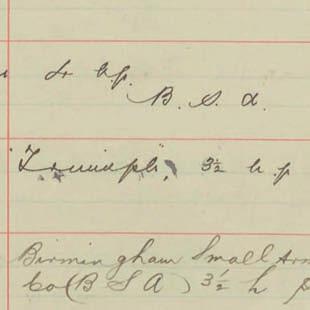 4 h.p.
B. S. A.
"Triumph", 3½ h. p
Birmingham Small Arm
Co (B S A) 3½ h p